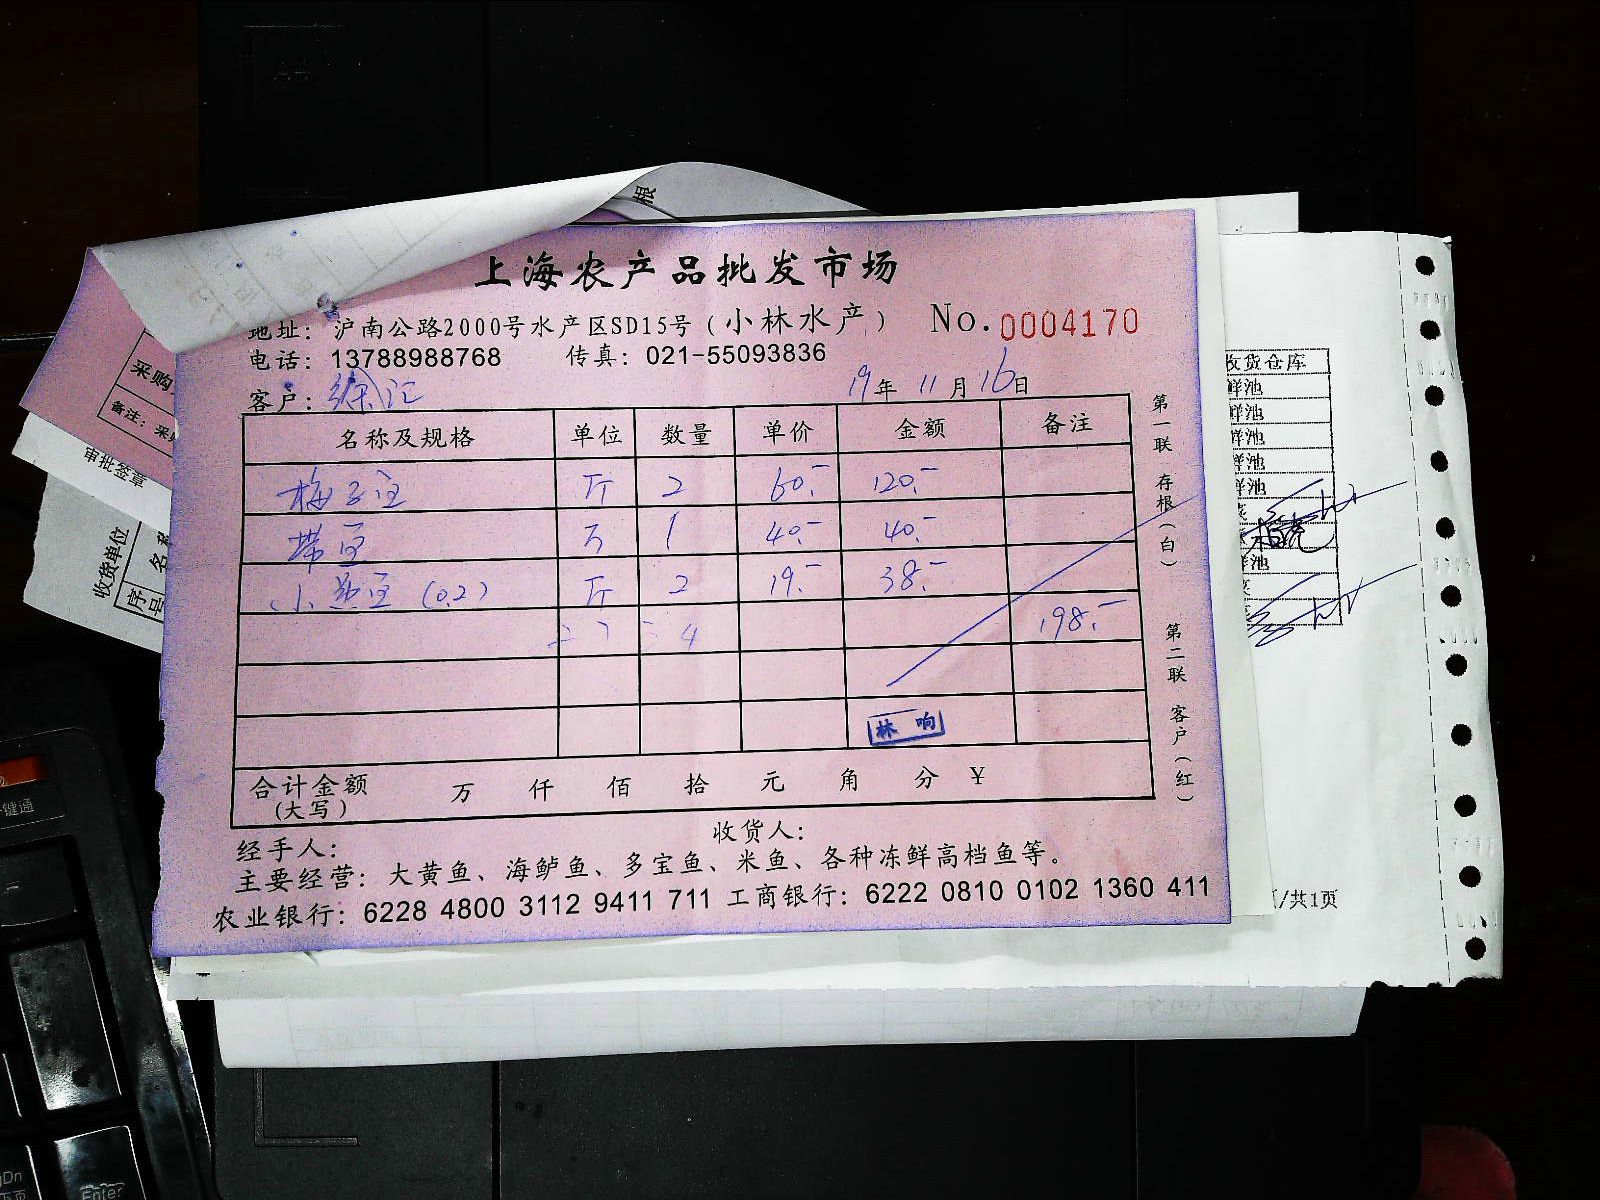 上海农产品批发市场
地址：沪南公路2000号水产区SD15号（小林水产） No.0004170
电话：13788988768 传真：021-55093836
客户：徐汇 19年11月16日
名称及规格 单位 数量 单价 金额 备注
梅子鱼 斤 2 60.- 120.-
带鱼 斤 1 40.- 40.-
小黄鱼(0.2) 斤 2 19.- 38.-
198.-
林响
合计金额 万 仟 佰 拾 元 角 分 ¥
(大写)
经手人： 收货人：
主要经营：大黄鱼、海鲈鱼、多宝鱼、米鱼、各种冻鲜高档鱼等。
农业银行：6228 4800 3112 9411 711 工商银行：6222 0810 0102 1360 411
第一联 存根（白）
第二联 客户（红）
根
采购
备注：采购
审批签章
收货单位
序号 名称
收货仓库
鲜池
鲜池
鲜池
鲜池
鲜池
鲜池
/共1页
键通
Enter